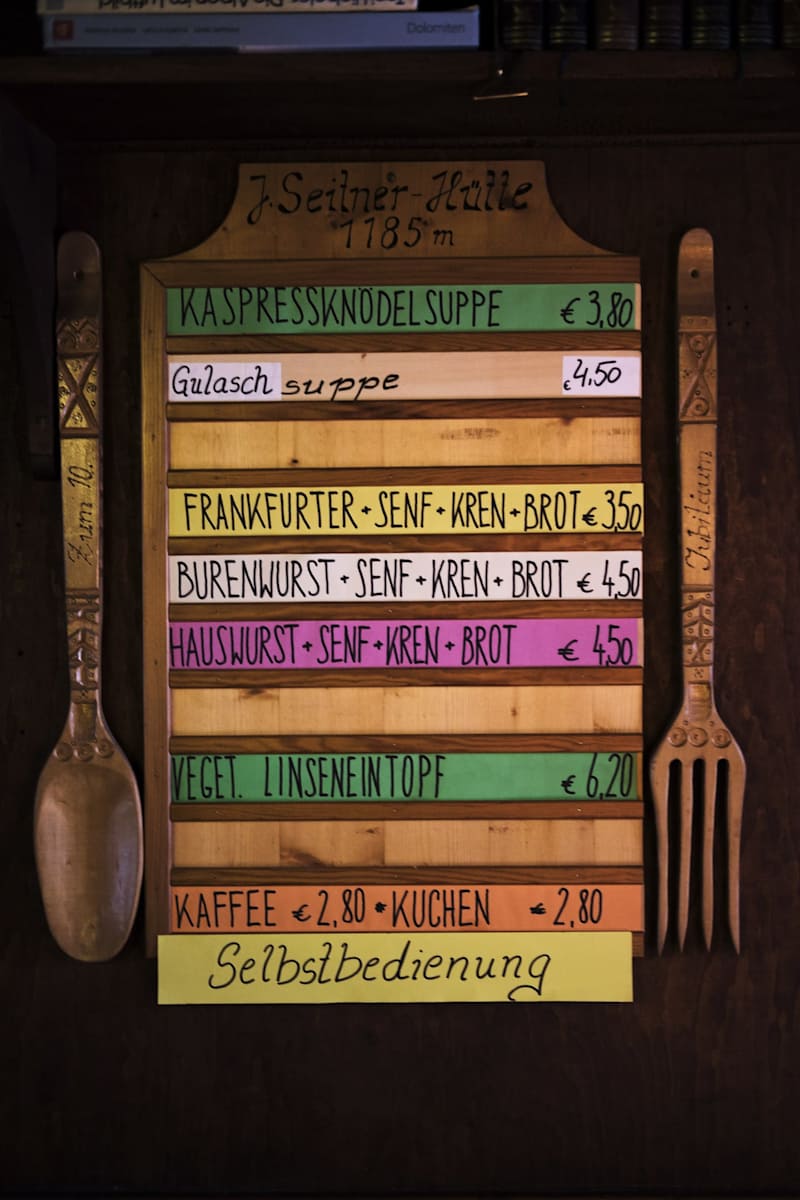 Dolomiten
J. Seitner-Hütte
1185 m
KASPRESSKNÖDELSUPPE € 3,80
Gulaschsuppe € 4,50
Zum 10.
Jubiläum
FRANKFURTER + SENF + KREN + BROT € 3,50
BURENWURST + SENF + KREN + BROT € 4,50
HAUSWURST + SENF + KREN + BROT € 4,50
VEGET. LINSENEINTOPF € 6,20
KAFFEE € 2,80 * KUCHEN € 2,80
Selbstbedienung